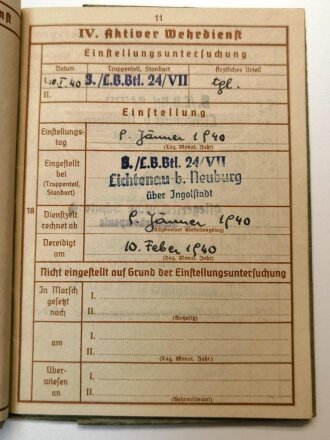 11
IV. Aktiver Wehrdienst
Einstellungsuntersuchung
Datum Truppenteil, Standort Ärztliches Urteil
I. 40 8./L.B.Btl. 24/VII tgl.
II.
Einstellung
Einstellungs-tag 8. Jänner 1940
(Tag, Monat, Jahr)
Eingestellt bei (Truppenteil, Standort) 8./L.B.Btl. 24/VII
Lichtenau b. Neuburg
über Ingolstadt
18
Dienstzeit rechnet ab 8. Jänner 1940
(Allgemeiner Einstellungstag)
Vereidigt am 10. Feber 1940
(Tag, Monat, Jahr)
Nicht eingestellt auf Grund der Einstellungsuntersuchung
In Marsch gesetzt nach I.
II.
(Wohnsitz)
am I.
II.
(Tag, Monat, Jahr)
Über-wiesen an I.
II.
(Wehrmeldeamt)